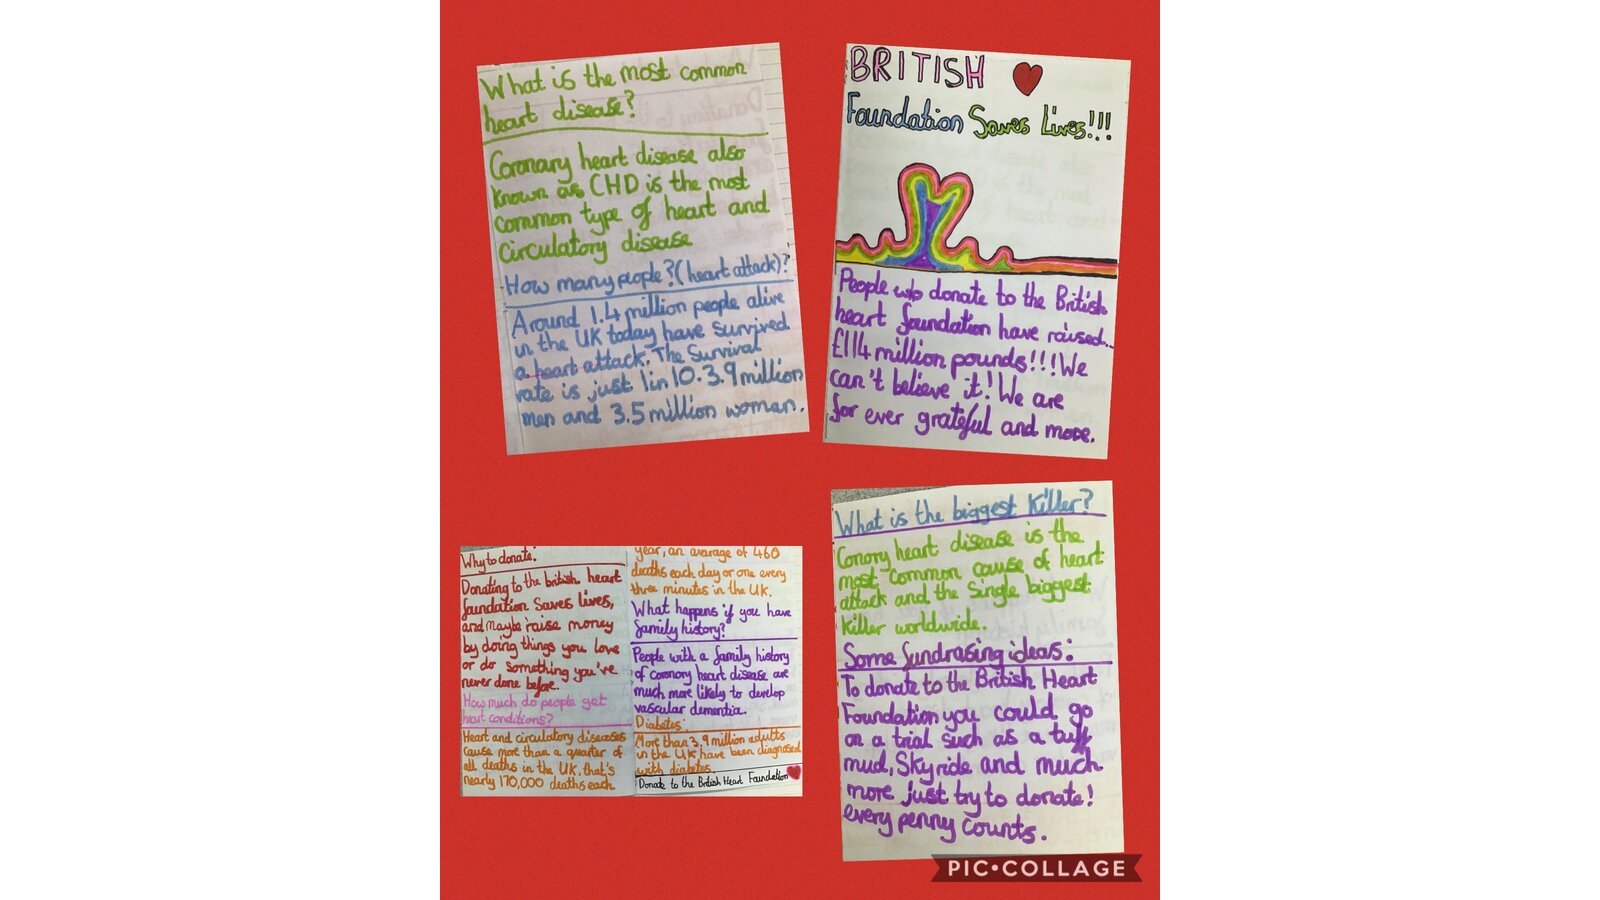 What is the most common
heart disease?
Coronary heart disease also
known as CHD is the most
common type of heart and
circulatory disease
How many people?(heart attack)?
Around 1.4 million people alive
in the UK today have survived
a heart attack. The survival
rate is just 1in 10.3.9 million
men and 3.5 million woman.
BRITISH
Foundation Saves Lives!!!
People who donate to the British
heart foundation have raised...
£114 million pounds!!! We
can't believe it! We are
for ever grateful and more.
Why to donate:
Donating to the british heart
foundation saves lives,
and maybe raise money
by doing things you love
or do something you've
never done before.
How much do people get
heart conditions?
Heart and circulatory diseases
cause more than a quarter of
all deaths in the UK, that's
nearly 170,000 deaths each
year, an avarage of 460
deaths each day or one every
three minutes in the UK.
What happens if you have
family history?
People with a family history
of coronory heart disease are
much more likely to develop
vascular dementia.
Diabetes:
More than 3.9 million adults
in the UK have been diagnosed
with diabetes.
Donate to the British Heart Foundation
What is the biggest killer?
Conory heart disease is the
most common cause of heart
attack and the single biggest
killer worldwide.
Some fundrasing ideas:
To donate to the British Heart
Foundation you could go
on a trial such as a tuff
mud, Sky ride and much
more just try to donate!
every penny counts.
PIC•COLLAGE